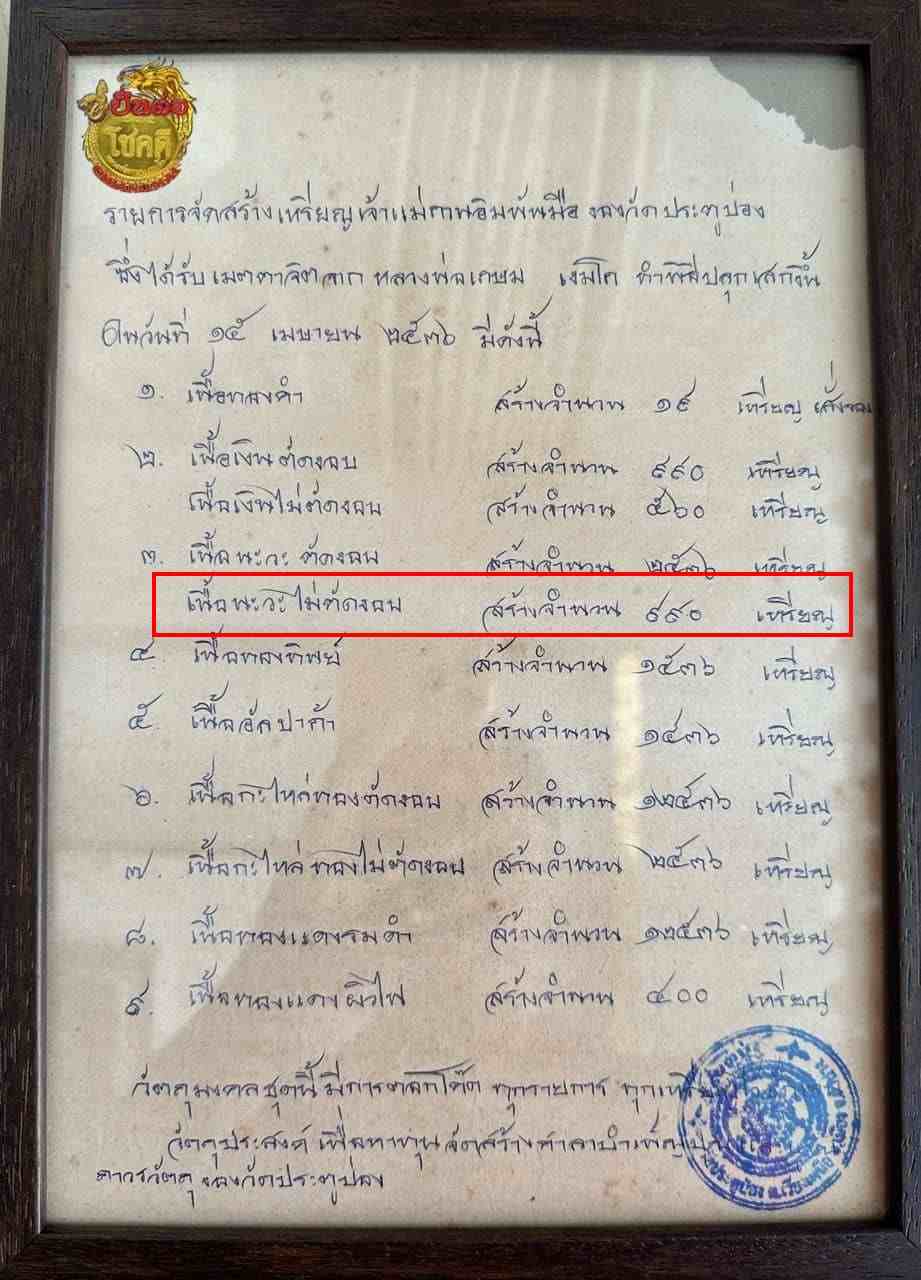 ปันผล
โชคดี
รายการจัดสร้างเหรียญเจ้าแม่กวนอิมพันมือ ของวัดประตูป่อง
ซึ่งได้รับเมตตาจิตจาก หลวงพ่อเกษม เขมโก ทำพิธีปลุกเสกขึ้น
ในวันที่ ๑๕ เมษายน ๒๕๓๖ มีดังนี้
๑. เนื้อทองคำ สร้างจำนวน ๑๙ เหรียญ สั่งจอง
๒. เนื้อเงินตัดขอบ สร้างจำนวน ๙๙๐ เหรียญ
เนื้อเงินไม่ตัดขอบ สร้างจำนวน ๕๖๐ เหรียญ
๓. เนื้อนะวะ ตัดขอบ สร้างจำนวน ๒๕๓๖ เหรียญ
เนื้อนะวะ ไม่ตัดขอบ สร้างจำนวน ๙๙๐ เหรียญ
๔. เนื้อทองทิพย์ สร้างจำนวน ๑๕๓๖ เหรียญ
๕. เนื้ออัลปาก้า สร้างจำนวน ๑๕๓๖ เหรียญ
๖. เนื้อกะไหล่ทองตัดขอบ สร้างจำนวน ๑๒๕๓๖ เหรียญ
๗. เนื้อกะไหล่ทองไม่ตัดขอบ สร้างจำนวน ๒๕๓๖ เหรียญ
๘. เนื้อทองแดงรมดำ สร้างจำนวน ๑๒๕๓๖ เหรียญ
๙. เนื้อทองแดงผิวไฟ สร้างจำนวน ๔๐๐ เหรียญ
วัตถุมงคลชุดนี้ มีการตอกโค๊ต ทุกรายการ ทุกเหรียญ
วัตถุประสงค์ เพื่อหาทุนจัดสร้างศาลาบำเพ็ญบุญ
ถาวรวัตถุ ของวัดประตูป่อง